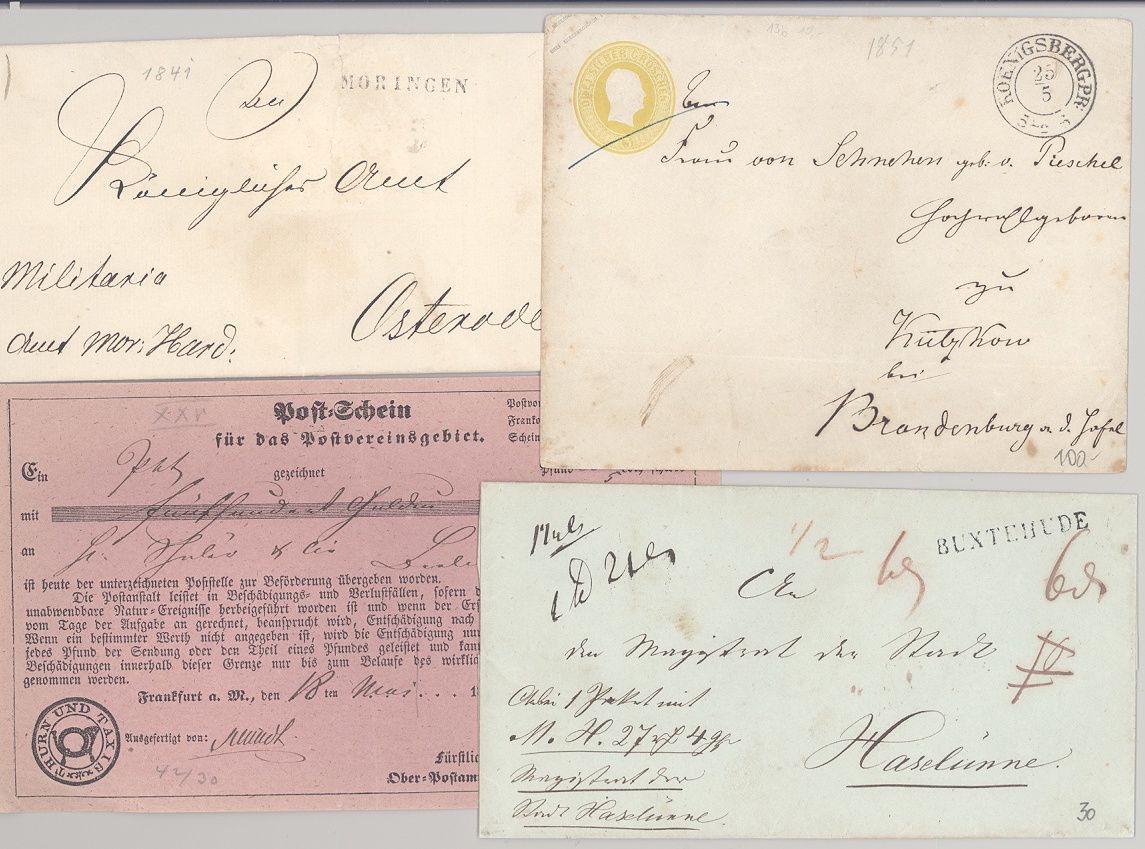 1841
MORINGEN
Den
Königliches Amt
Militaria
Amt Mor: Hard:
Osterode
1851
KOENIGSBERG PR.
25
5
Frau von Schnehen geb: v. Pieschel
Hochwohlgeboren
zu
Kützkow
bei
Brandenburg a. d. Hafel
100-
XXV
Post-Schein
für das Postvereinsgebiet.
Ein
gezeichnet
mit fünfhundert Gulden
an
ist heute der unterzeichneten Poststelle zur Beförderung übergeben worden.
Die Postanstalt leistet in Beschädigungs- und Verlustfällen, sofern d
unabwendbare Natur-Ereignisse herbeigeführt worden ist und wenn der Ers
vom Tage der Aufgabe an gerechnet, beansprucht wird, Entschädigung nach
Wenn ein bestimmter Werth nicht angegeben ist, wird die Entschädigung nur
jedes Pfund der Sendung oder den Theil eines Pfundes geleistet und kann
Beschädigungen innerhalb dieser Grenze nur bis zum Belaufe des wirklic
genommen werden.
Frankfurt a. M., den 18 ten Mai
THURN UND TAXIS
Ausgefertigt von:
42/30
Fürstlic
Ober-Postam
1/2
BUXTEHUDE
An
den Magistrat der Stadt
Haselünne.
Anbei 1 Paket mit
M. H. 27
Magistrat der
Stadt Haselünne.
30